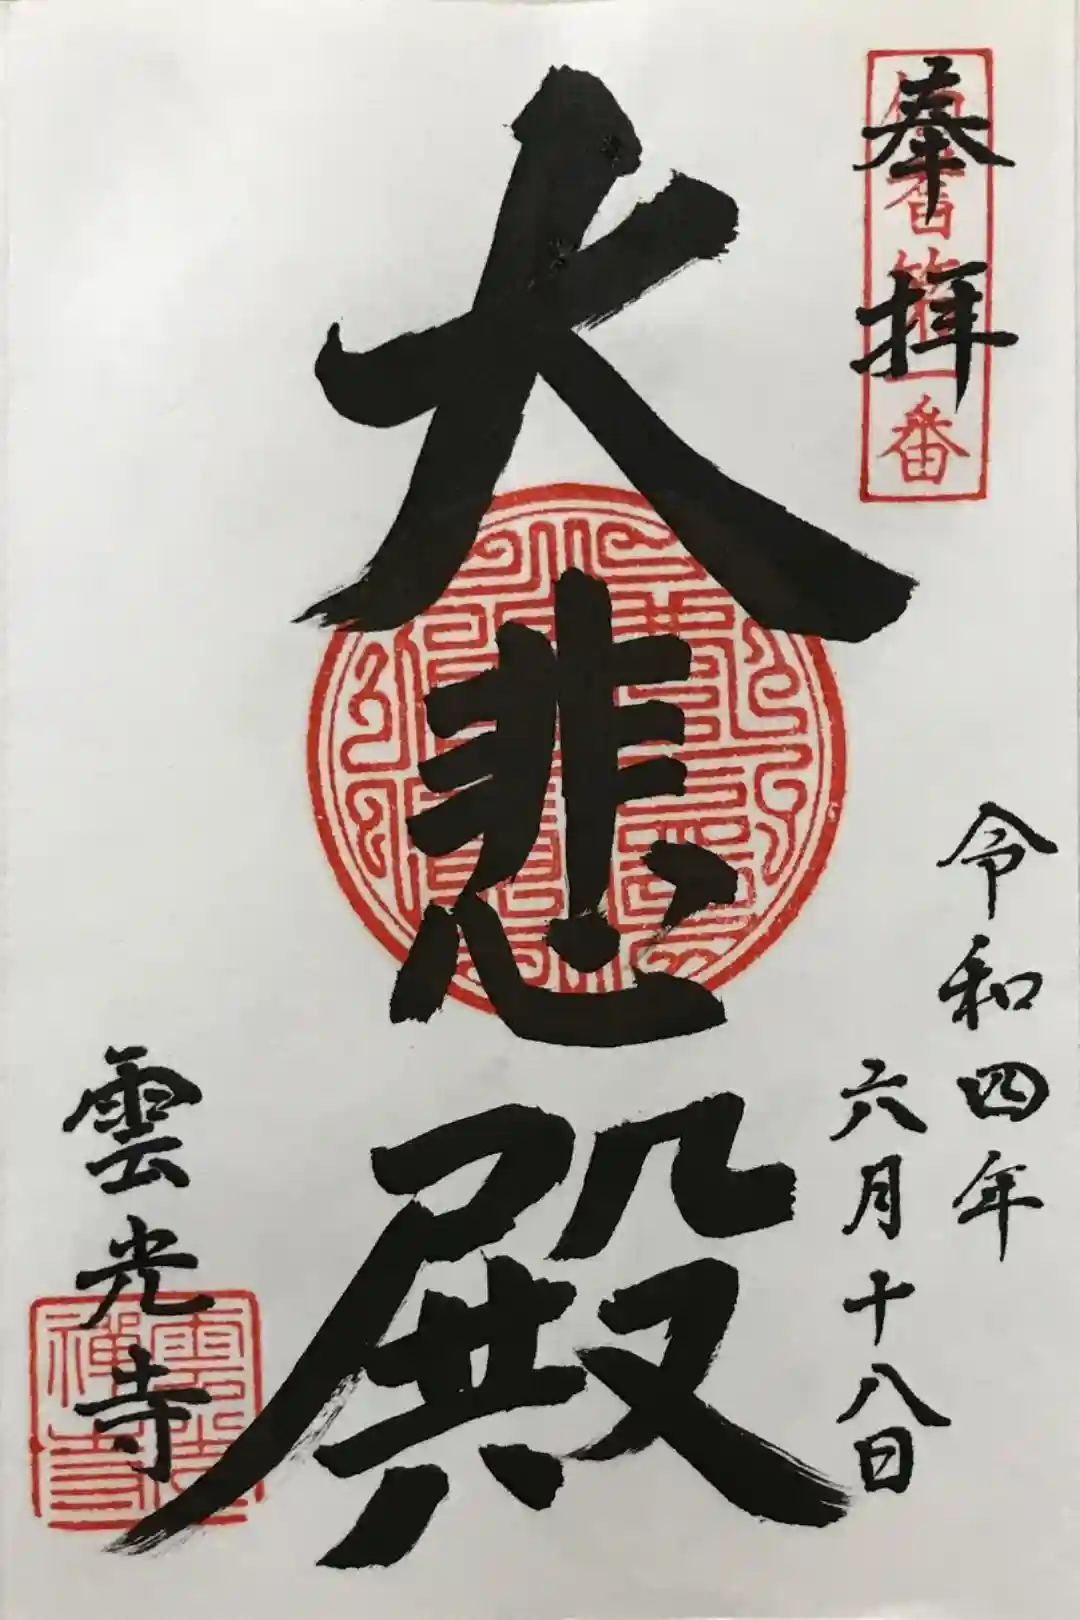 奉拝
令和四年
六月十八日
大悲殿
雲光寺